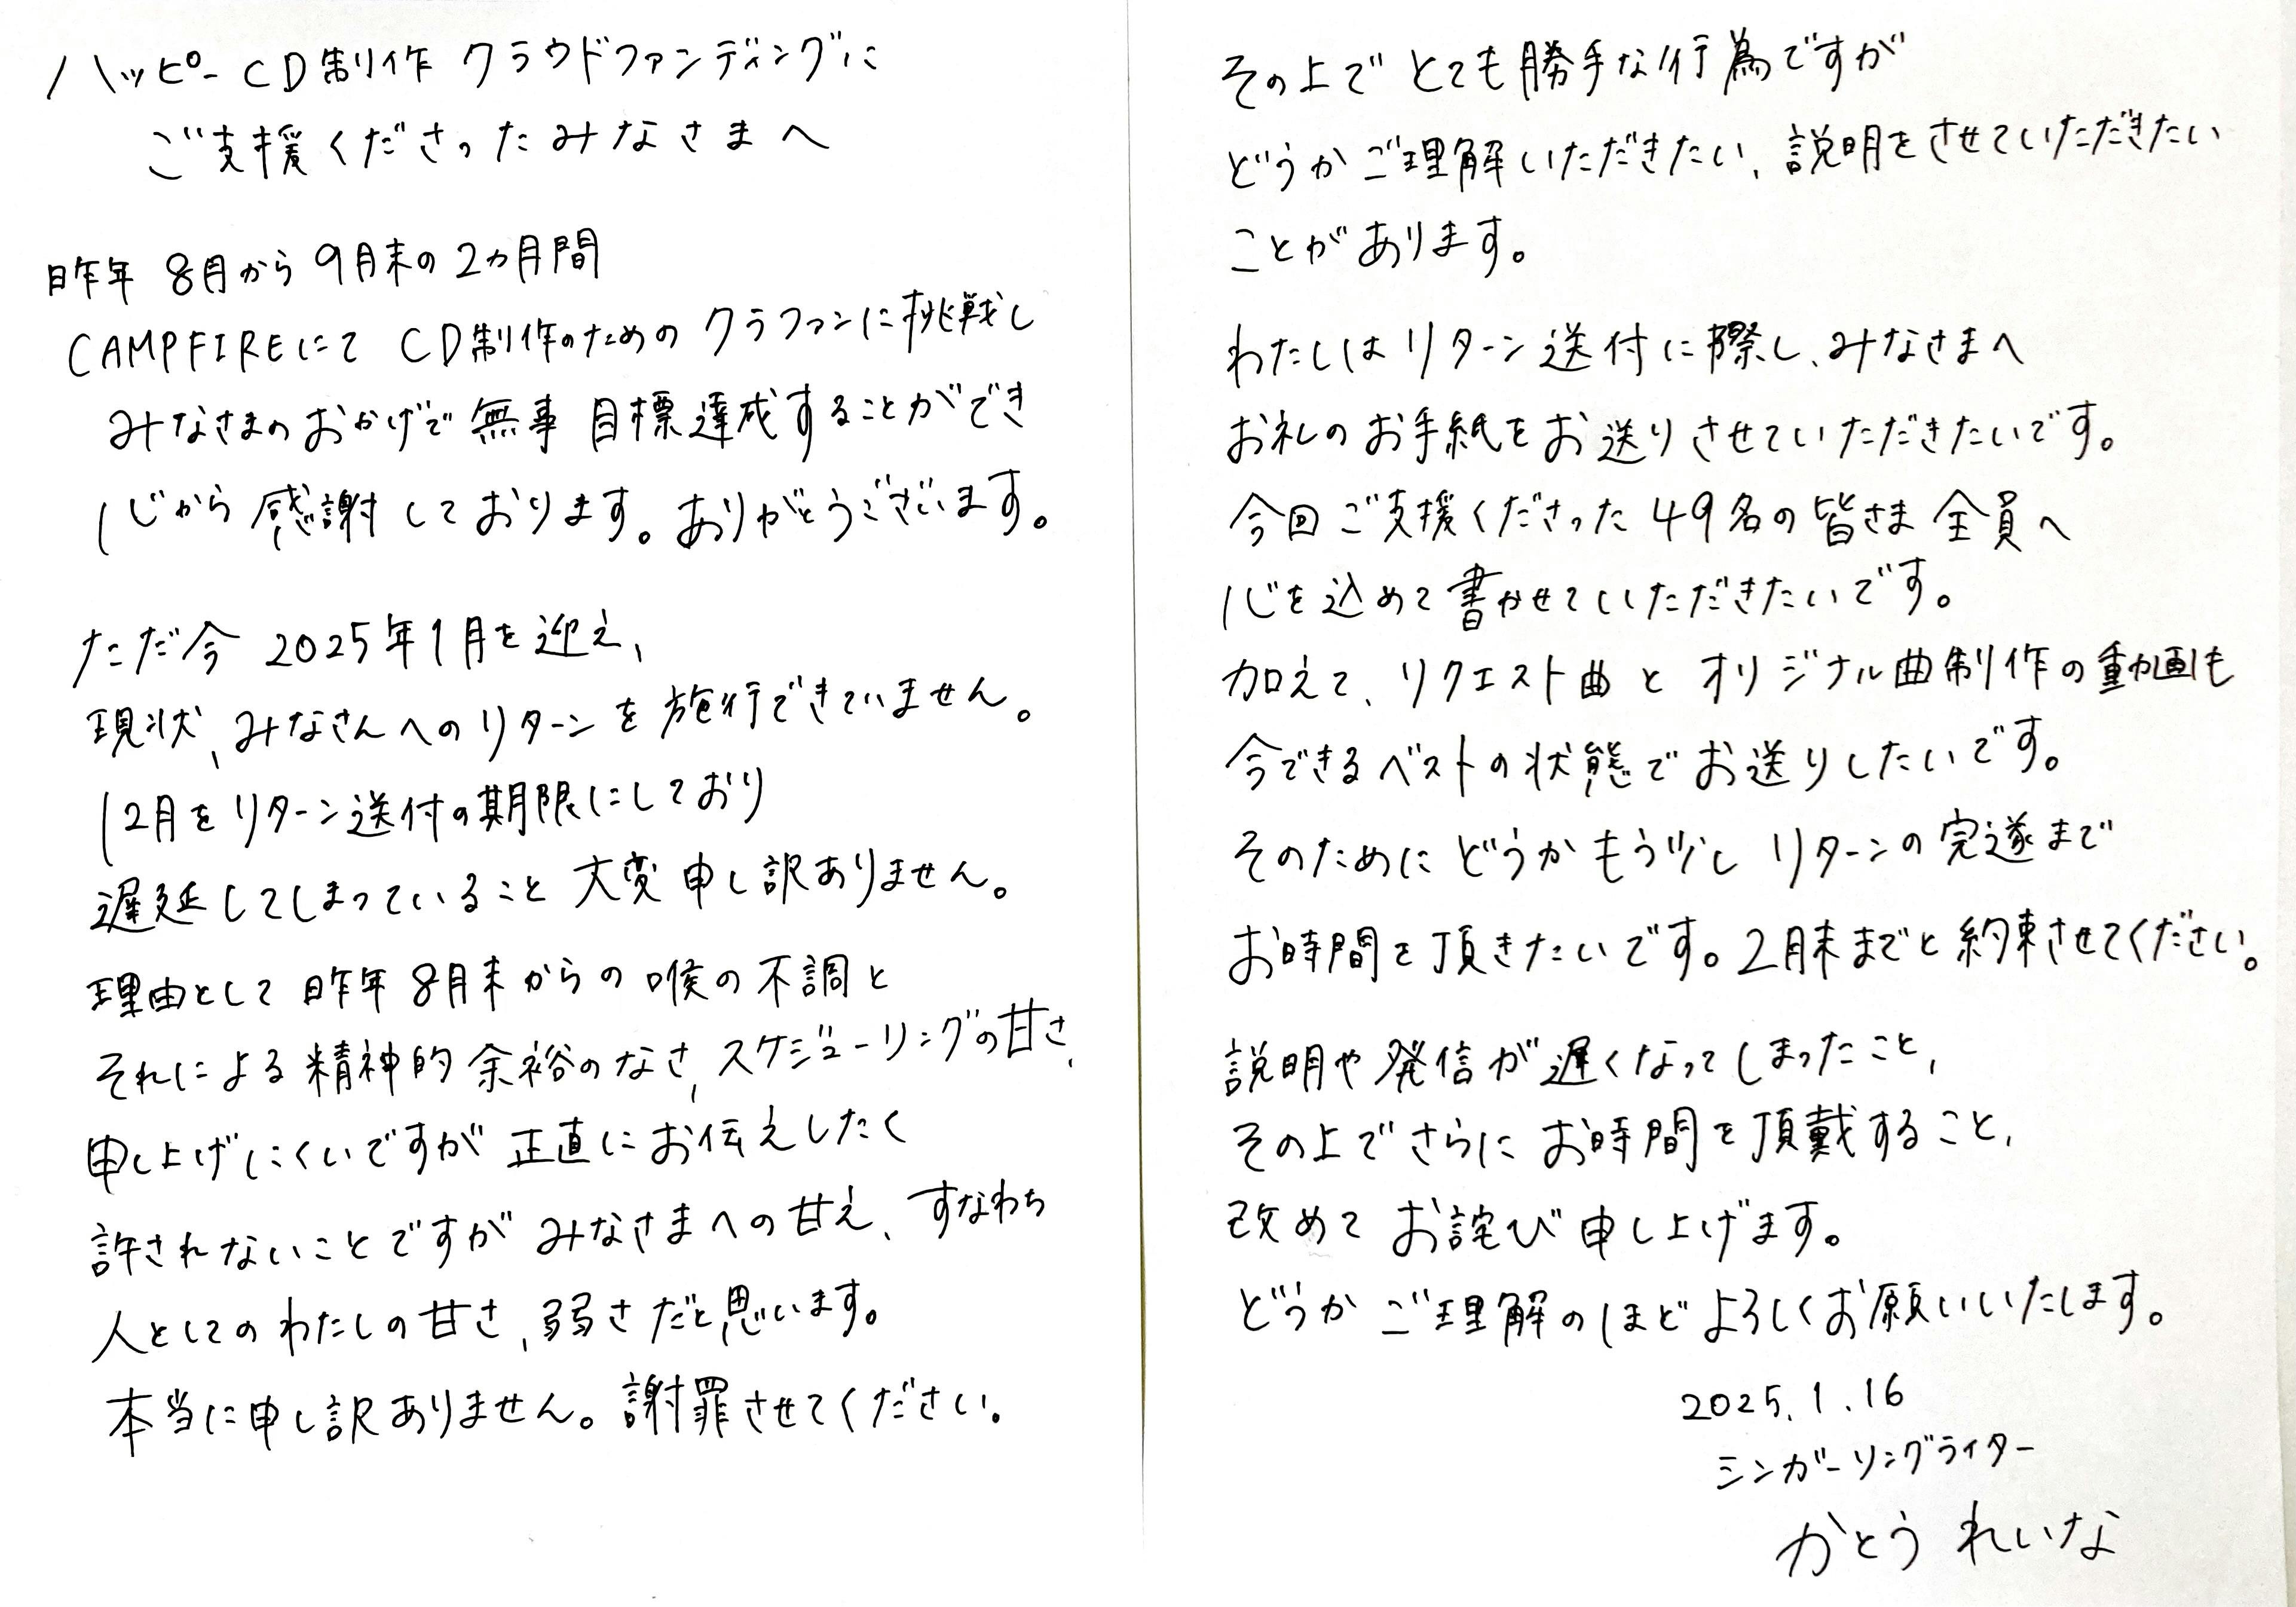 ハッピーCD制作 クラウドファンディングに
ご支援くださったみなさまへ
昨年 8月から 9月末の 2ヵ月間
CAMPFIREにて CD制作のための クラファンに挑戦し
みなさまのおかげで無事 目標達成することができ
心から感謝しております。ありがとうございます。
ただ今 2025年1月を迎え、
現状、みなさんへのリターンを施行できていません。
12月をリターン送付の期限にしており
遅延してしまっていること 大変申し訳ありません。
理由として 昨年 8月末からの喉の不調と
それによる精神的余裕のなさ、スケジューリングの甘さ、
申し上げにくいですが 正直にお伝えしたく
許されないことですが みなさまへの甘え、すなわち
人としてのわたしの甘さ、弱さだと思います。
本当に申し訳ありません。謝罪させてください。
その上で とても勝手な行為ですが
どうかご理解いただきたい、説明をさせていただきたい
ことがあります。
わたしはリターン送付に際し、みなさまへ
お礼のお手紙をお送りさせていただきたいです。
今回ご支援くださった49名の皆さま 全員へ
心を込めて書かせていただきたいです。
加えて、リクエスト曲と オリジナル曲制作の動画も
今できるベストの状態でお送りしたいです。
そのためにどうかもう少し リターンの完遂まで
お時間を頂きたいです。2月末までと約束させてください。
説明や発信が遅くなってしまったこと、
その上でさらに お時間を頂戴すること、
改めて お詫び申し上げます。
どうか ご理解のほど よろしくお願いいたします。
2025.1.16
シンガーソングライター
かとう れいな